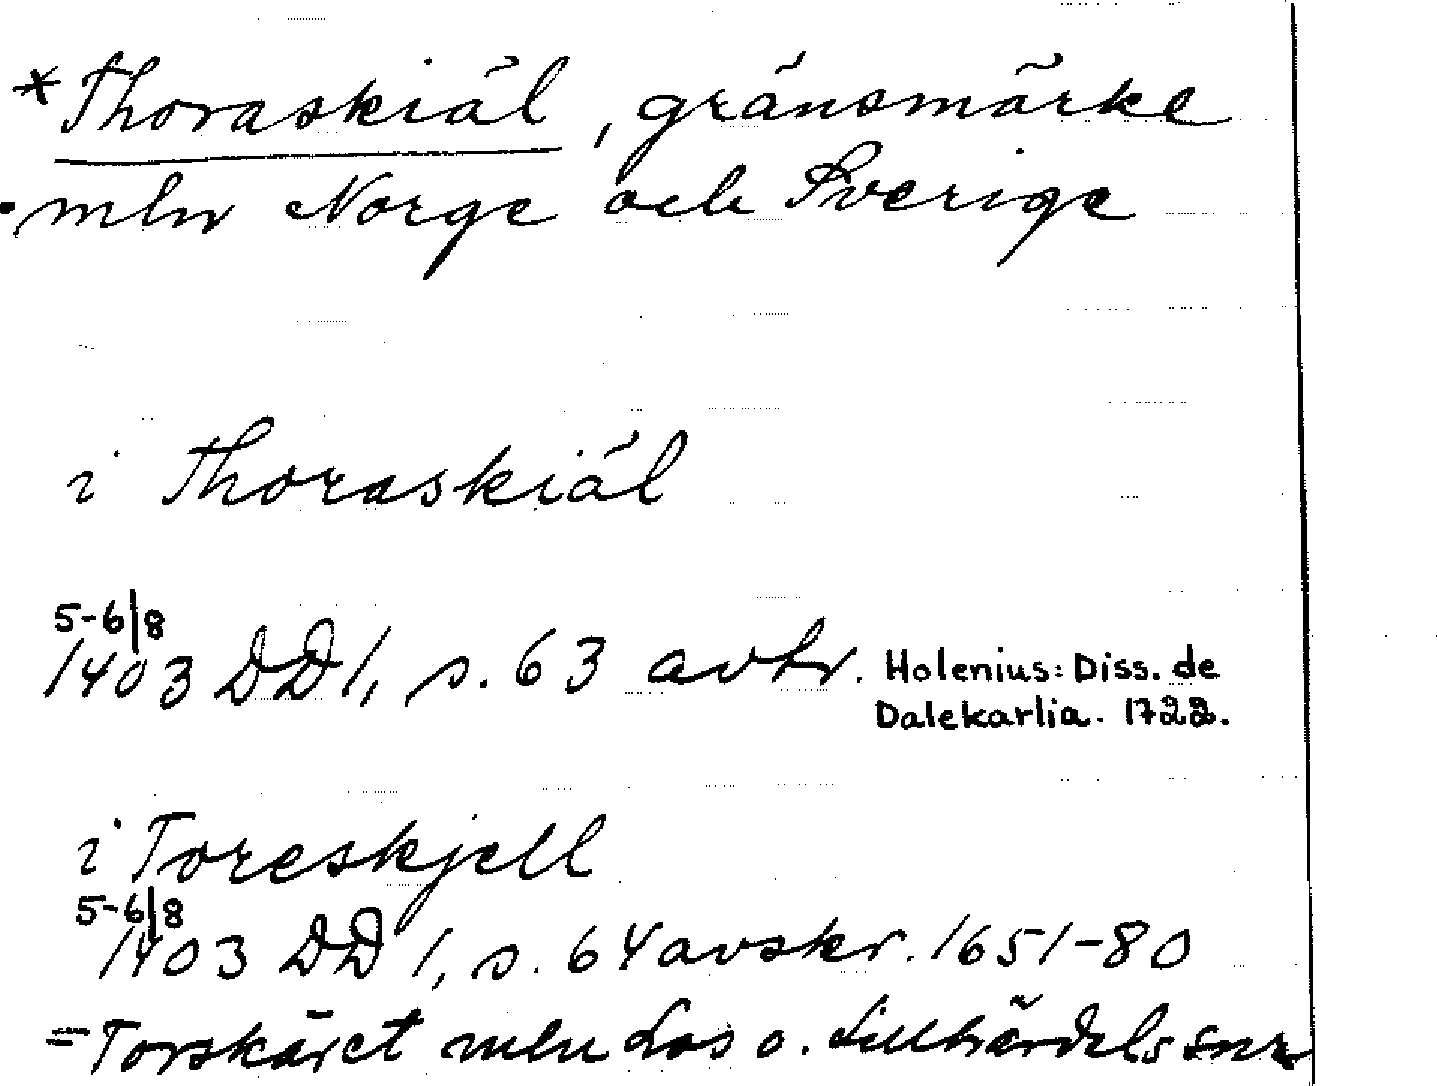 *Thoraskiäl, gränsmärke
mln Norge och Sverige
i Thoraskiäl
5-6/8
1403 DD 1, s. 63 avtr. Holenius: Diss. de
Dalekarlia. 1722.
i Toreskjell
5-6/8
1403 DD 1, s. 64 avskr. 1651-80
= Torskäret mln Los o. Lillhärdals snr